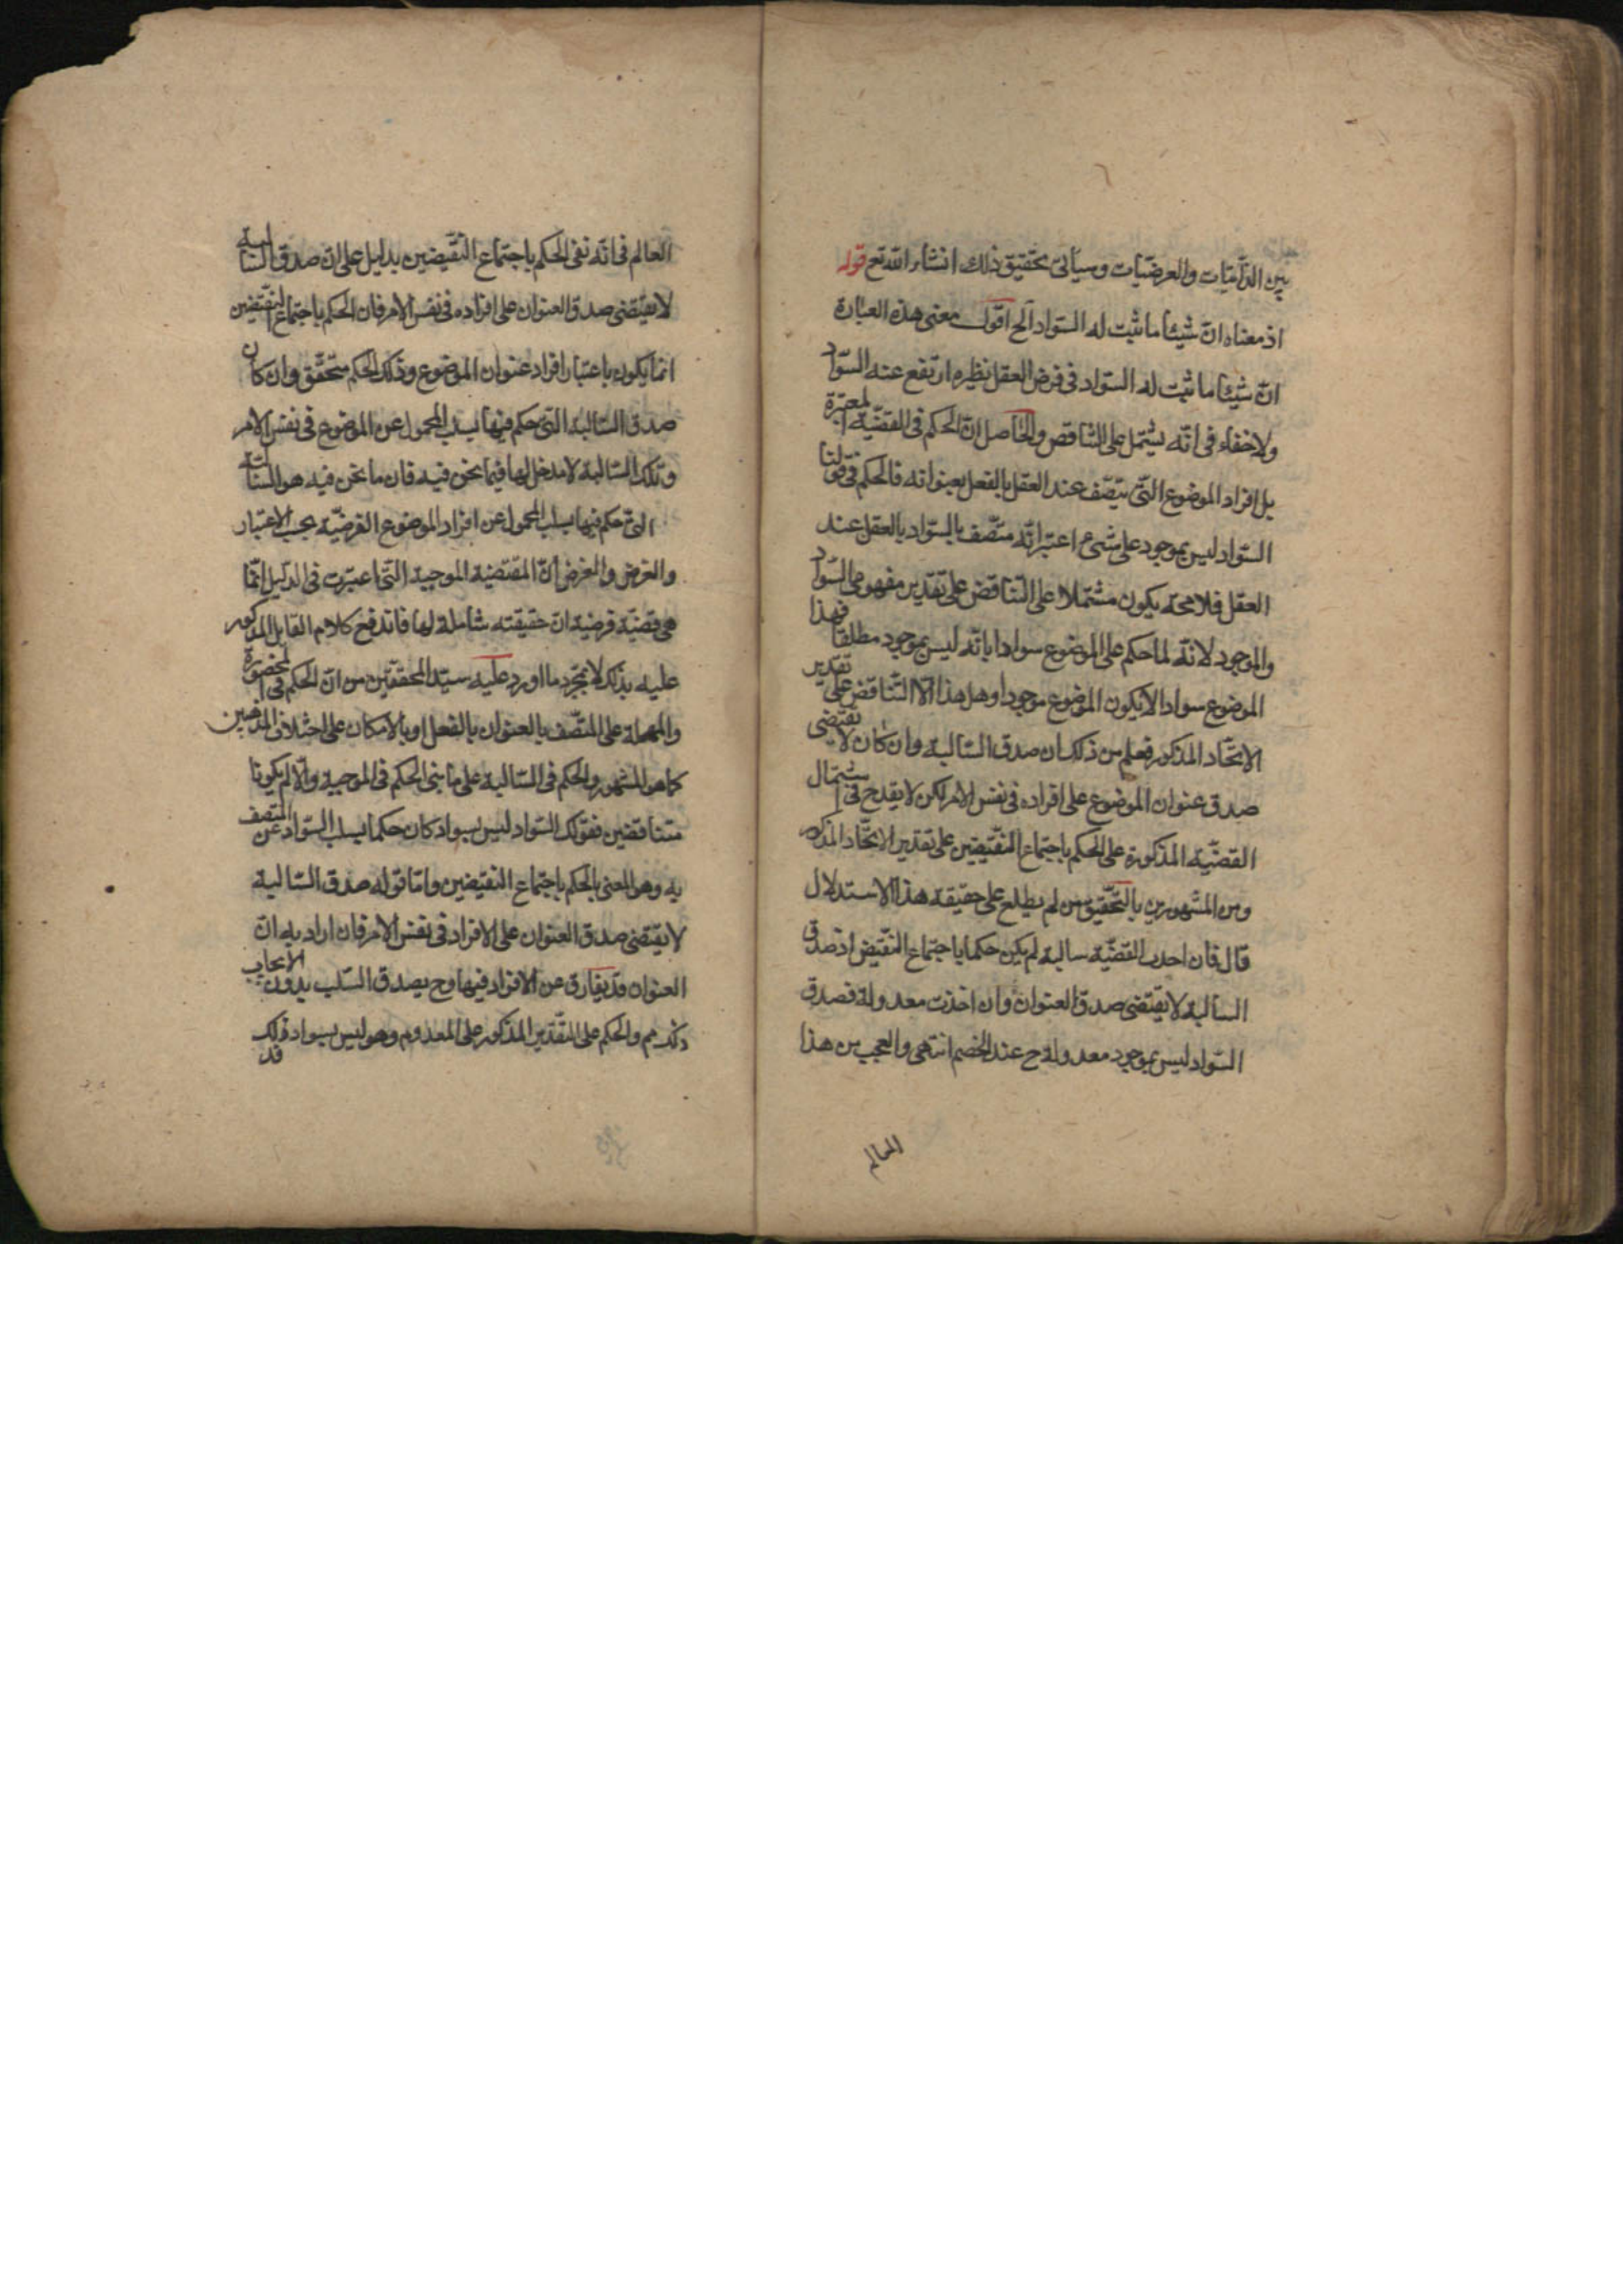 بين الذّاتيّات والعرضيّات وسيأتى تحقيق ذلك انشاء الله تع قوله
اذ معناه انّ شيئا ما ثبت له السّواد الخ اقول معنى هذه العبارة
انّ شيئا ما ثبت له السّواد فى فرض العقل نظيره ارتفع عنه السّواد
ولا خفاء فى انّه يشتمل على التّناقض والحاصل انّ الحكم فى القضيّة المعتبرة
بل افراد الموضوع الّتى يتّصف عند العقل بالفعل بعنوانه فالحكم فى قولنا
السّواد ليس بموجود على شىء اعتبر انّه متّصف بالسّواد بالعقل عند
العقل فلا محة يكون مشتملا على التّناقض على تقدير مفهومى السّواد
والموجود لانّه لما حكم على الموضوع سوادا بانّه ليس بموجود مطلقا فهذا
الموضوع سوادا لا يكون الموضوع موجودا وهل هذا الّا التّناقض على تقدير
الاتّحاد المذكور فعلم من ذلك ان صدق السّالبة وان كان لا يقتضى
صدق عنوان الموضوع على افراده فى نفس الامر لكن لا يقدح فى اشتمال
القضيّة المذكورة على الحكم باجتماع النّقيضين على تقدير الاتّحاد المذكور
ومن المشهورين بالتّحقيق من لم يطلع على حقيقة هذا الاستدلال
قال فان احدت القضيّة سالبة لم يكن حكما باجتماع النّقيض اذ صدق
السالبة لا يقتضى صدق العنوان وان اخذت معدولة فصدق
السّواد ليس بموجود معدولة ح عند الخصم انتهى والعجب من هذا
العالم
العالم فى انّه نفى الحكم باجتماع النّقيضين بدليل على انّ صدق السّالبة
لا يقتضى صدق العنوان على افراده فى نفس الامر فان الحكم باجتماع النّقيضين
انما يكون باعتبار افراد عنوان الموضوع وذلك الحكم متحقّق وان كان
صدق السّالبة الّتى حكم فيها بسلب المحمول عن الموضوع فى نفس الامر
وتلك السّالبة لا مدخل لها فيما نحن فيه فان ما نحن فيه هو السّالبة
الّتى حكم فيها بسلب المحمول عن افراد الموضوع الفرضيّة بحسب الاعتبار
والفرض والغرض انّ المقتضية الموجبة الّتى اعتبرت فى الدّليل انّما
هى قضيّة فرضية انّ حقيقته شاملة لها فاندفع كلام القايل المذكور
عليه بذلك لا بمجرّد ما اورد عليه سيّد المحقّقين من انّ الحكم فى المحصورة
والمهملة على المتّصف بالعنوان بالفعل او بالامكان على اختلاف المذهبين
كما هو المشهور والحكم فى السّالبة على ما بنى الحكم فى الموجبة والّا لم يكونا
متناقضين فقولك السّواد ليس بسواد كان حكما بسلب السّواد عن المتصف
به وهو المعنى بالحكم باجتماع النقيضين وامّا قوله صدق السّالبة
لا يقتضى صدق العنوان على الافراد فى نفس الامر فان اراد به انّ
العنوان قد يفارق عن الافراد فيها وح يصدق السّلب بدون الايجاب
فذلك مم والحكم على التّقدير المذكور على المعدوم وهو ليس بسواد فذلك
قد